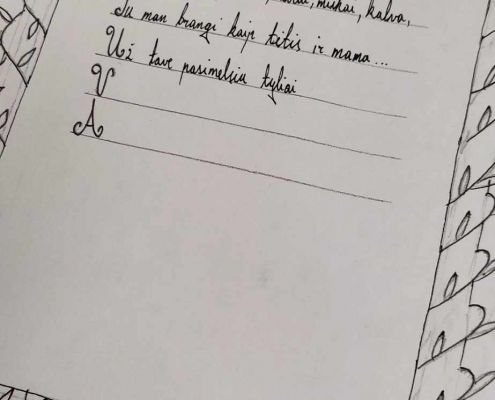 miškai, kalva,
Tu man brangi kaip tėtis ir mama...
Už tave pasimelsiu tyliai
V
A